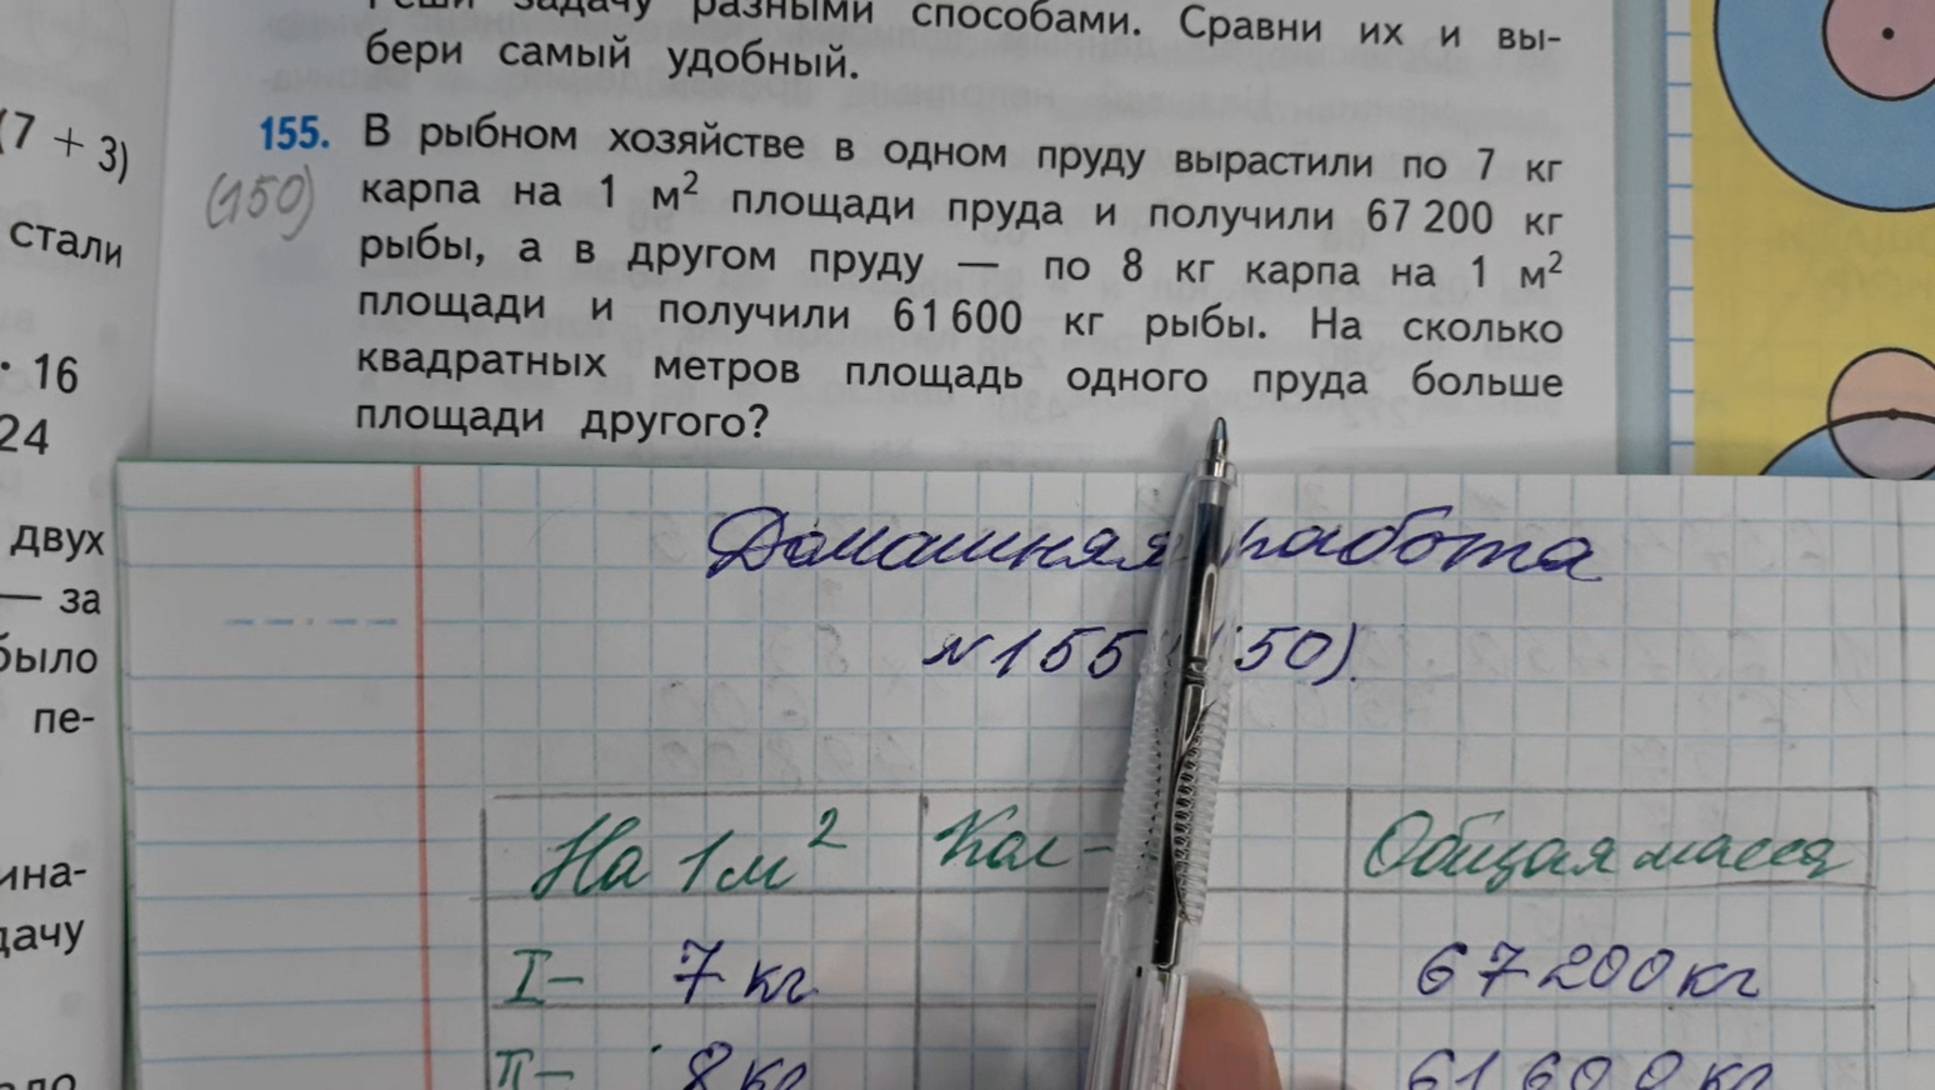 задачу разными способами. Сравни их и вы-
бери самый удобный.
155. В рыбном хозяйстве в одном пруду вырастили по 7 кг
(150) карпа на 1 м² площади пруда и получили 67 200 кг
рыбы, а в другом пруду — по 8 кг карпа на 1 м²
площади и получили 61 600 кг рыбы. На сколько
квадратных метров площадь одного пруда больше
площади другого?
(7 + 3)
стали
· 16
24
двух
— за
было
пе-
ина-
дачу
Домашняя работа
№155 50).
На 1м² Кол- Общая масса
I- 7 кг 67 200 кг
II- 8 кг 61 600 кг